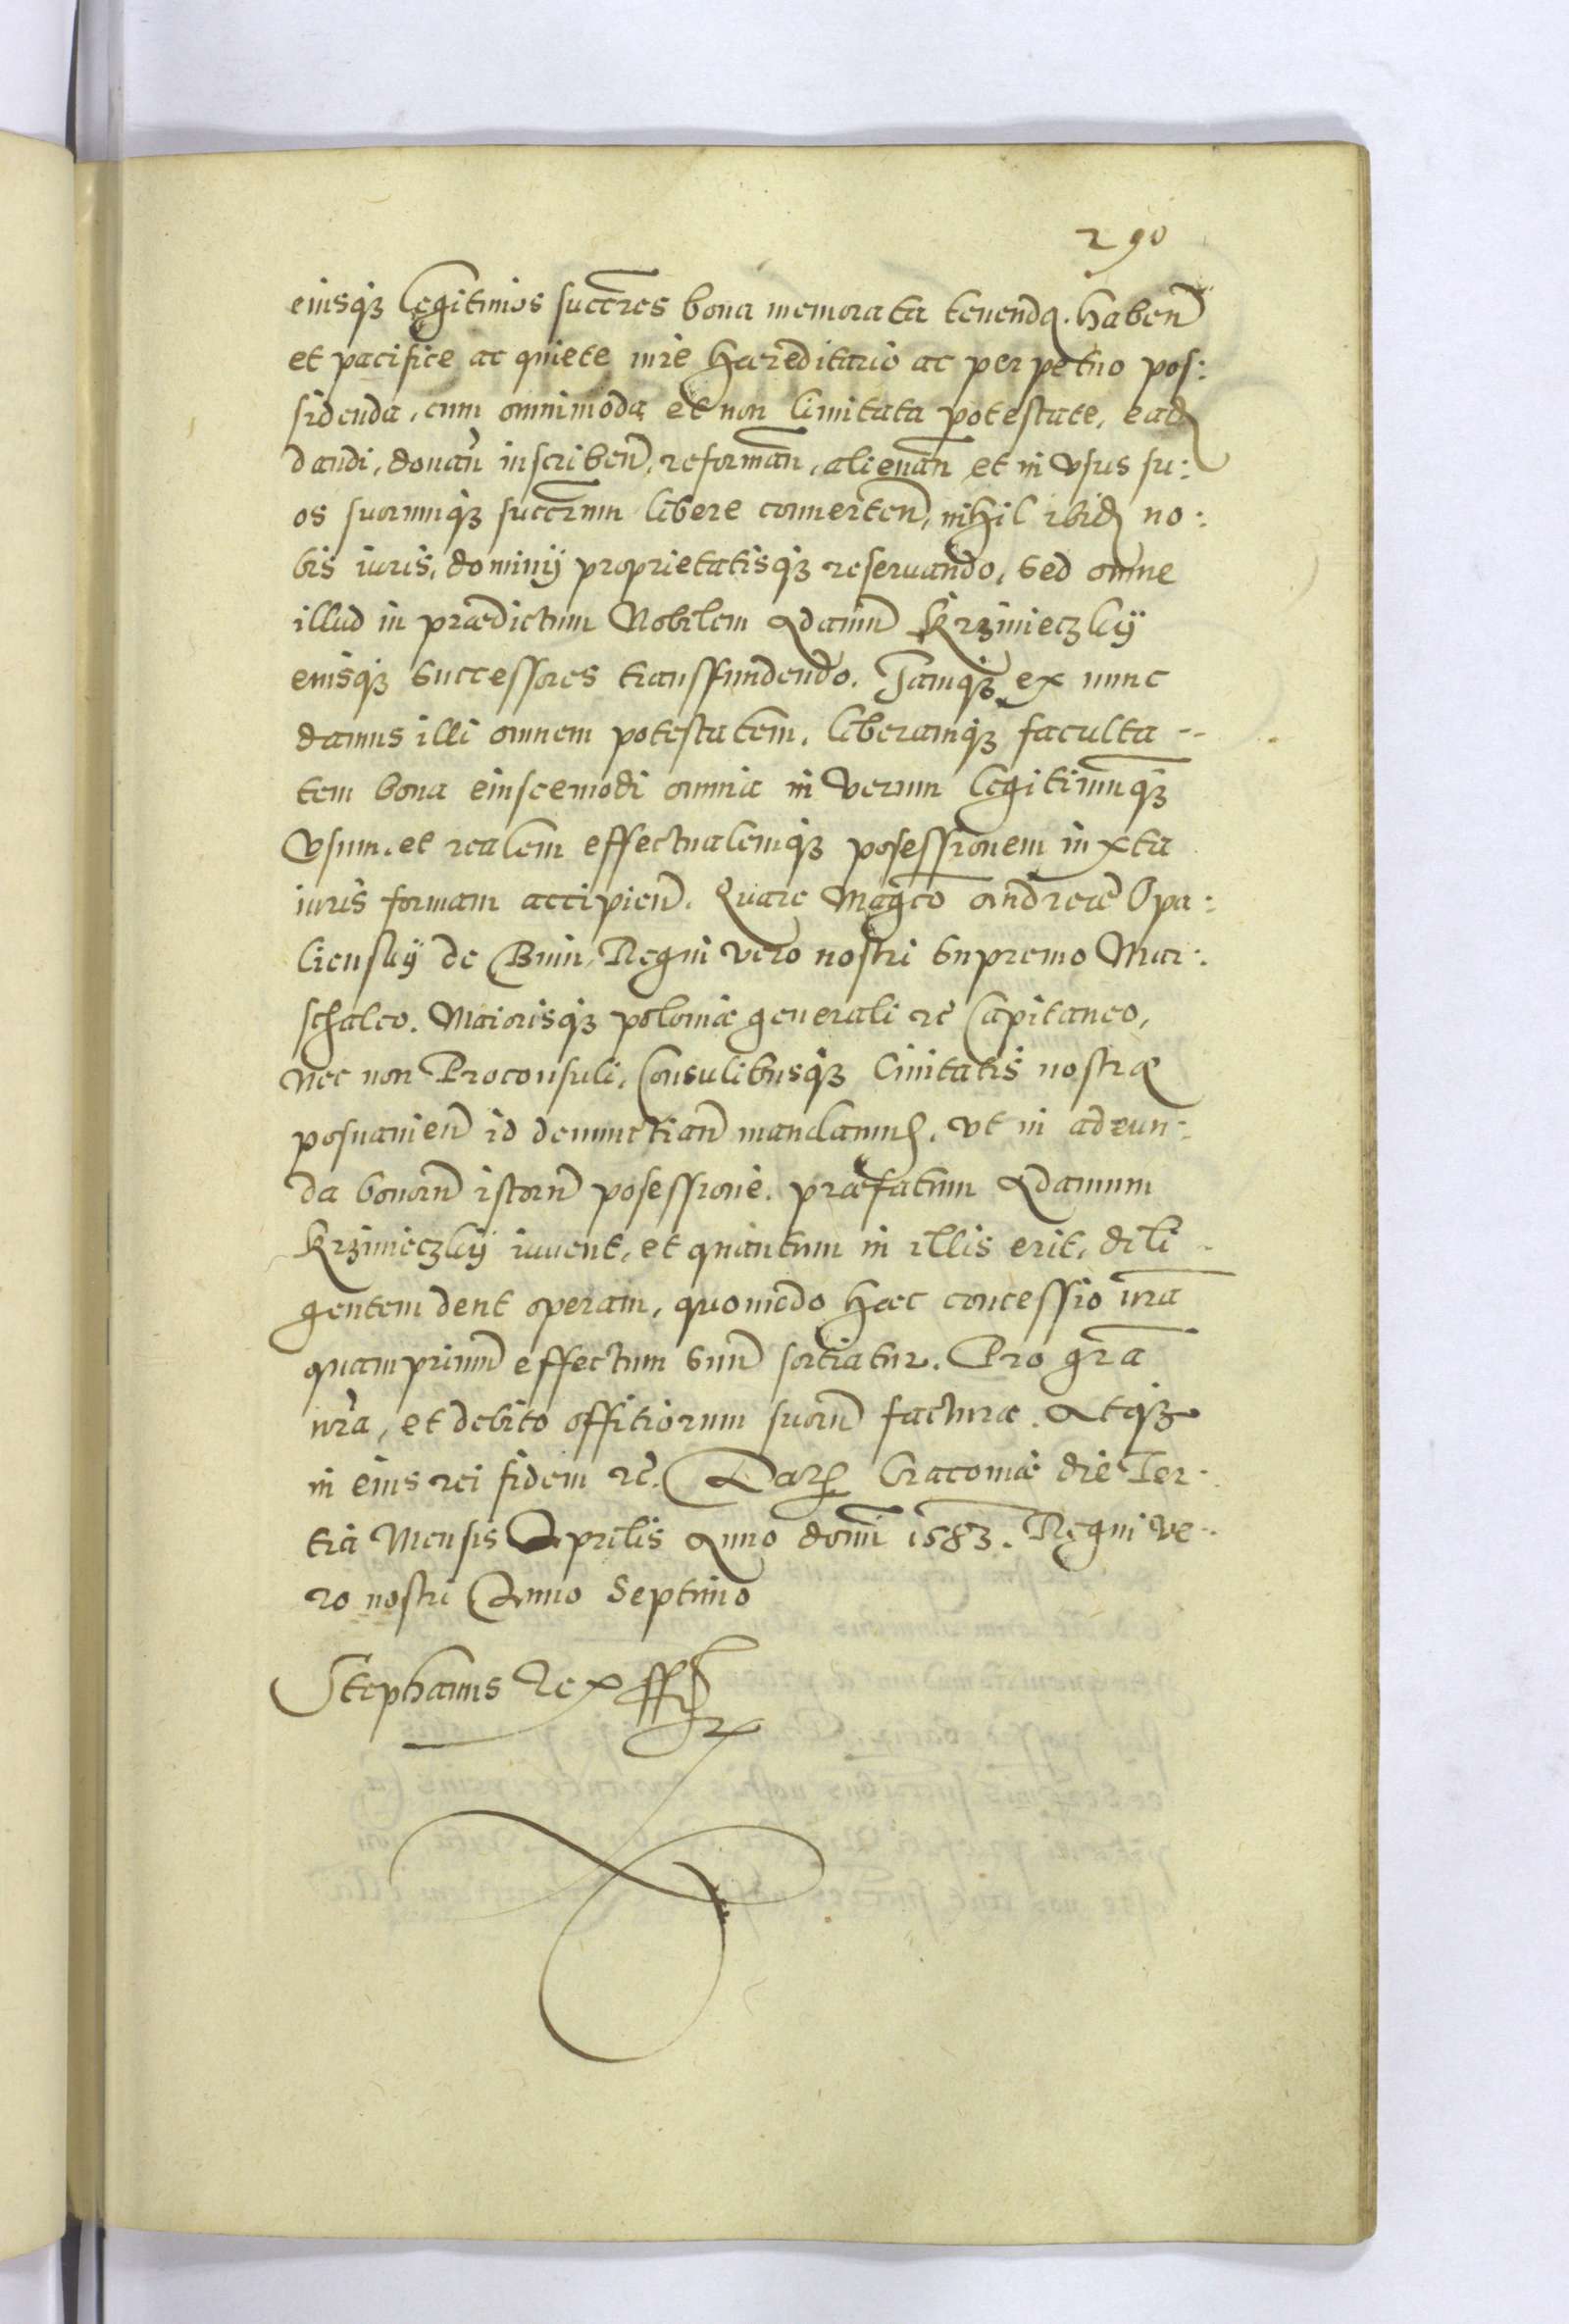 290
eiusq3 legitimos succres bona memorata tenenda. haben
et pacifice ac quiete iure haereditario ac perpetuo pos:
sidenda, cum omnimoda et non limitata potestate, ead
dandi, donan inscriben, reforman, alienan et in vsus su:
os suorumq3 succrum libere conuerten, nihil ibid no:
bis iuris, dominij proprietatisq3 reseruando, sed omne
illud in praedictum Nobilem Adamu Krzinieczkÿ
eiusq3 successores transffundendo. Iamq3 ex nunc
damus illi omnem potestatem, liberamq3 faculta--
tem bona eiuscemodi omnia in verum legitimuq3
vsum. et realem effectualemq3 posessionem iuxta
iuris formam accipien. Quare Magco Andreae Opa:
liensky de Bnin, Regni vero nostri supremo Mar:
schalco. Maiorisq3 poloniae generali rc Capitaneo,
nec non Proconsuli, Consulibusq3 Ciuitatis nostrae
posnanien id denunctian mandamus. vt in adeun:
da bonoru istoru posessione. praefatum Adamum
Krzinieczkÿ iuuent, et quantum in illis erit, dili-
gentem dent operam, quomodo haec concessio nra
quamprimu effectum suu sortiatur. Pro gra
nra, et debito offitiorum suoru facturae. Atq3
in eius rei fidem rc. Dat Cracouiae die Ter:
tia Mensis Aprilis Anno domi 1583. Regni ve-
ro nostri Anno Septimo
Stephanus Rex